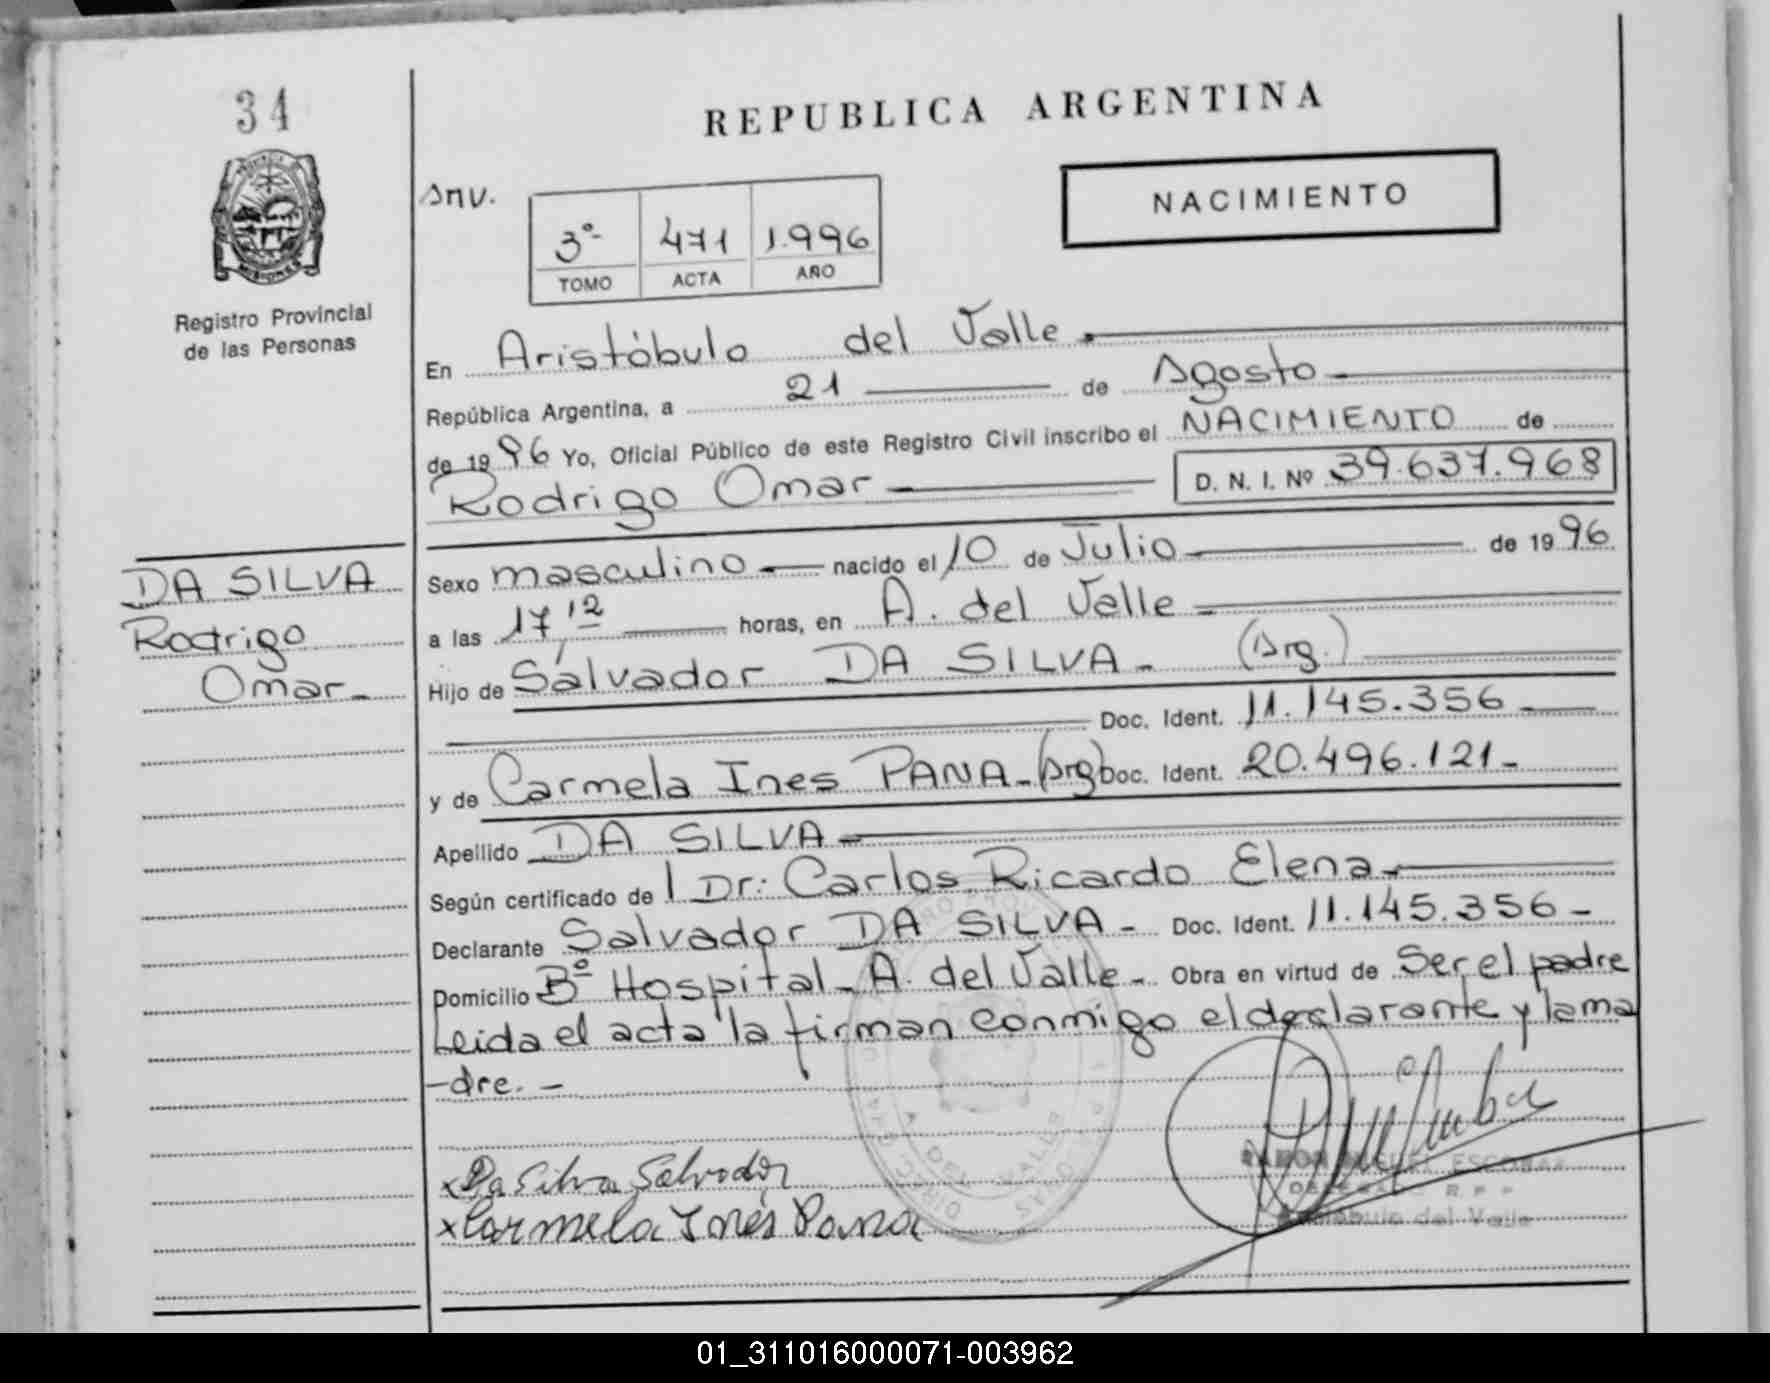 34
MISIONES
Registro Provincial
de las Personas
DA SILVA
Rodrigo
Omar-
REPUBLICA ARGENTINA
NACIMIENTO
3º 471 1.996
TOMO ACTA AÑO
En Aristóbulo del Valle.
República Argentina, a 21 de Agosto
de 1996 Yo, Oficial Público de este Registro Civil inscribo el NACIMIENTO de
Rodrigo Omar D. N. I. Nº 39.637.968
Sexo masculino nacido el 10 de Julio de 1996
a las 17,12 horas, en A. del Valle
Hijo de Salvador DA SILVA- (Arg.)
Doc. Ident. 11.145.356
y de Carmela Ines PANA-(Arg) Doc. Ident. 20.496.121-
Apellido DA SILVA
Según certificado de Dr: Carlos Ricardo Elena
Declarante Salvador DA SILVA- Doc. Ident. 11.145.356-
Domicilio Bº Hospital- A. del Valle- Obra en virtud de Ser el padre
Leida el acta la firman conmigo el declarante y la ma
-dre.-
x Da Silva Salvador
x Carmela Inés Pana
RAMON MIGUEL ESCOBAR
DELEGADO R.P.P.
Aristóbulo del Valle
01_311016000071-003962